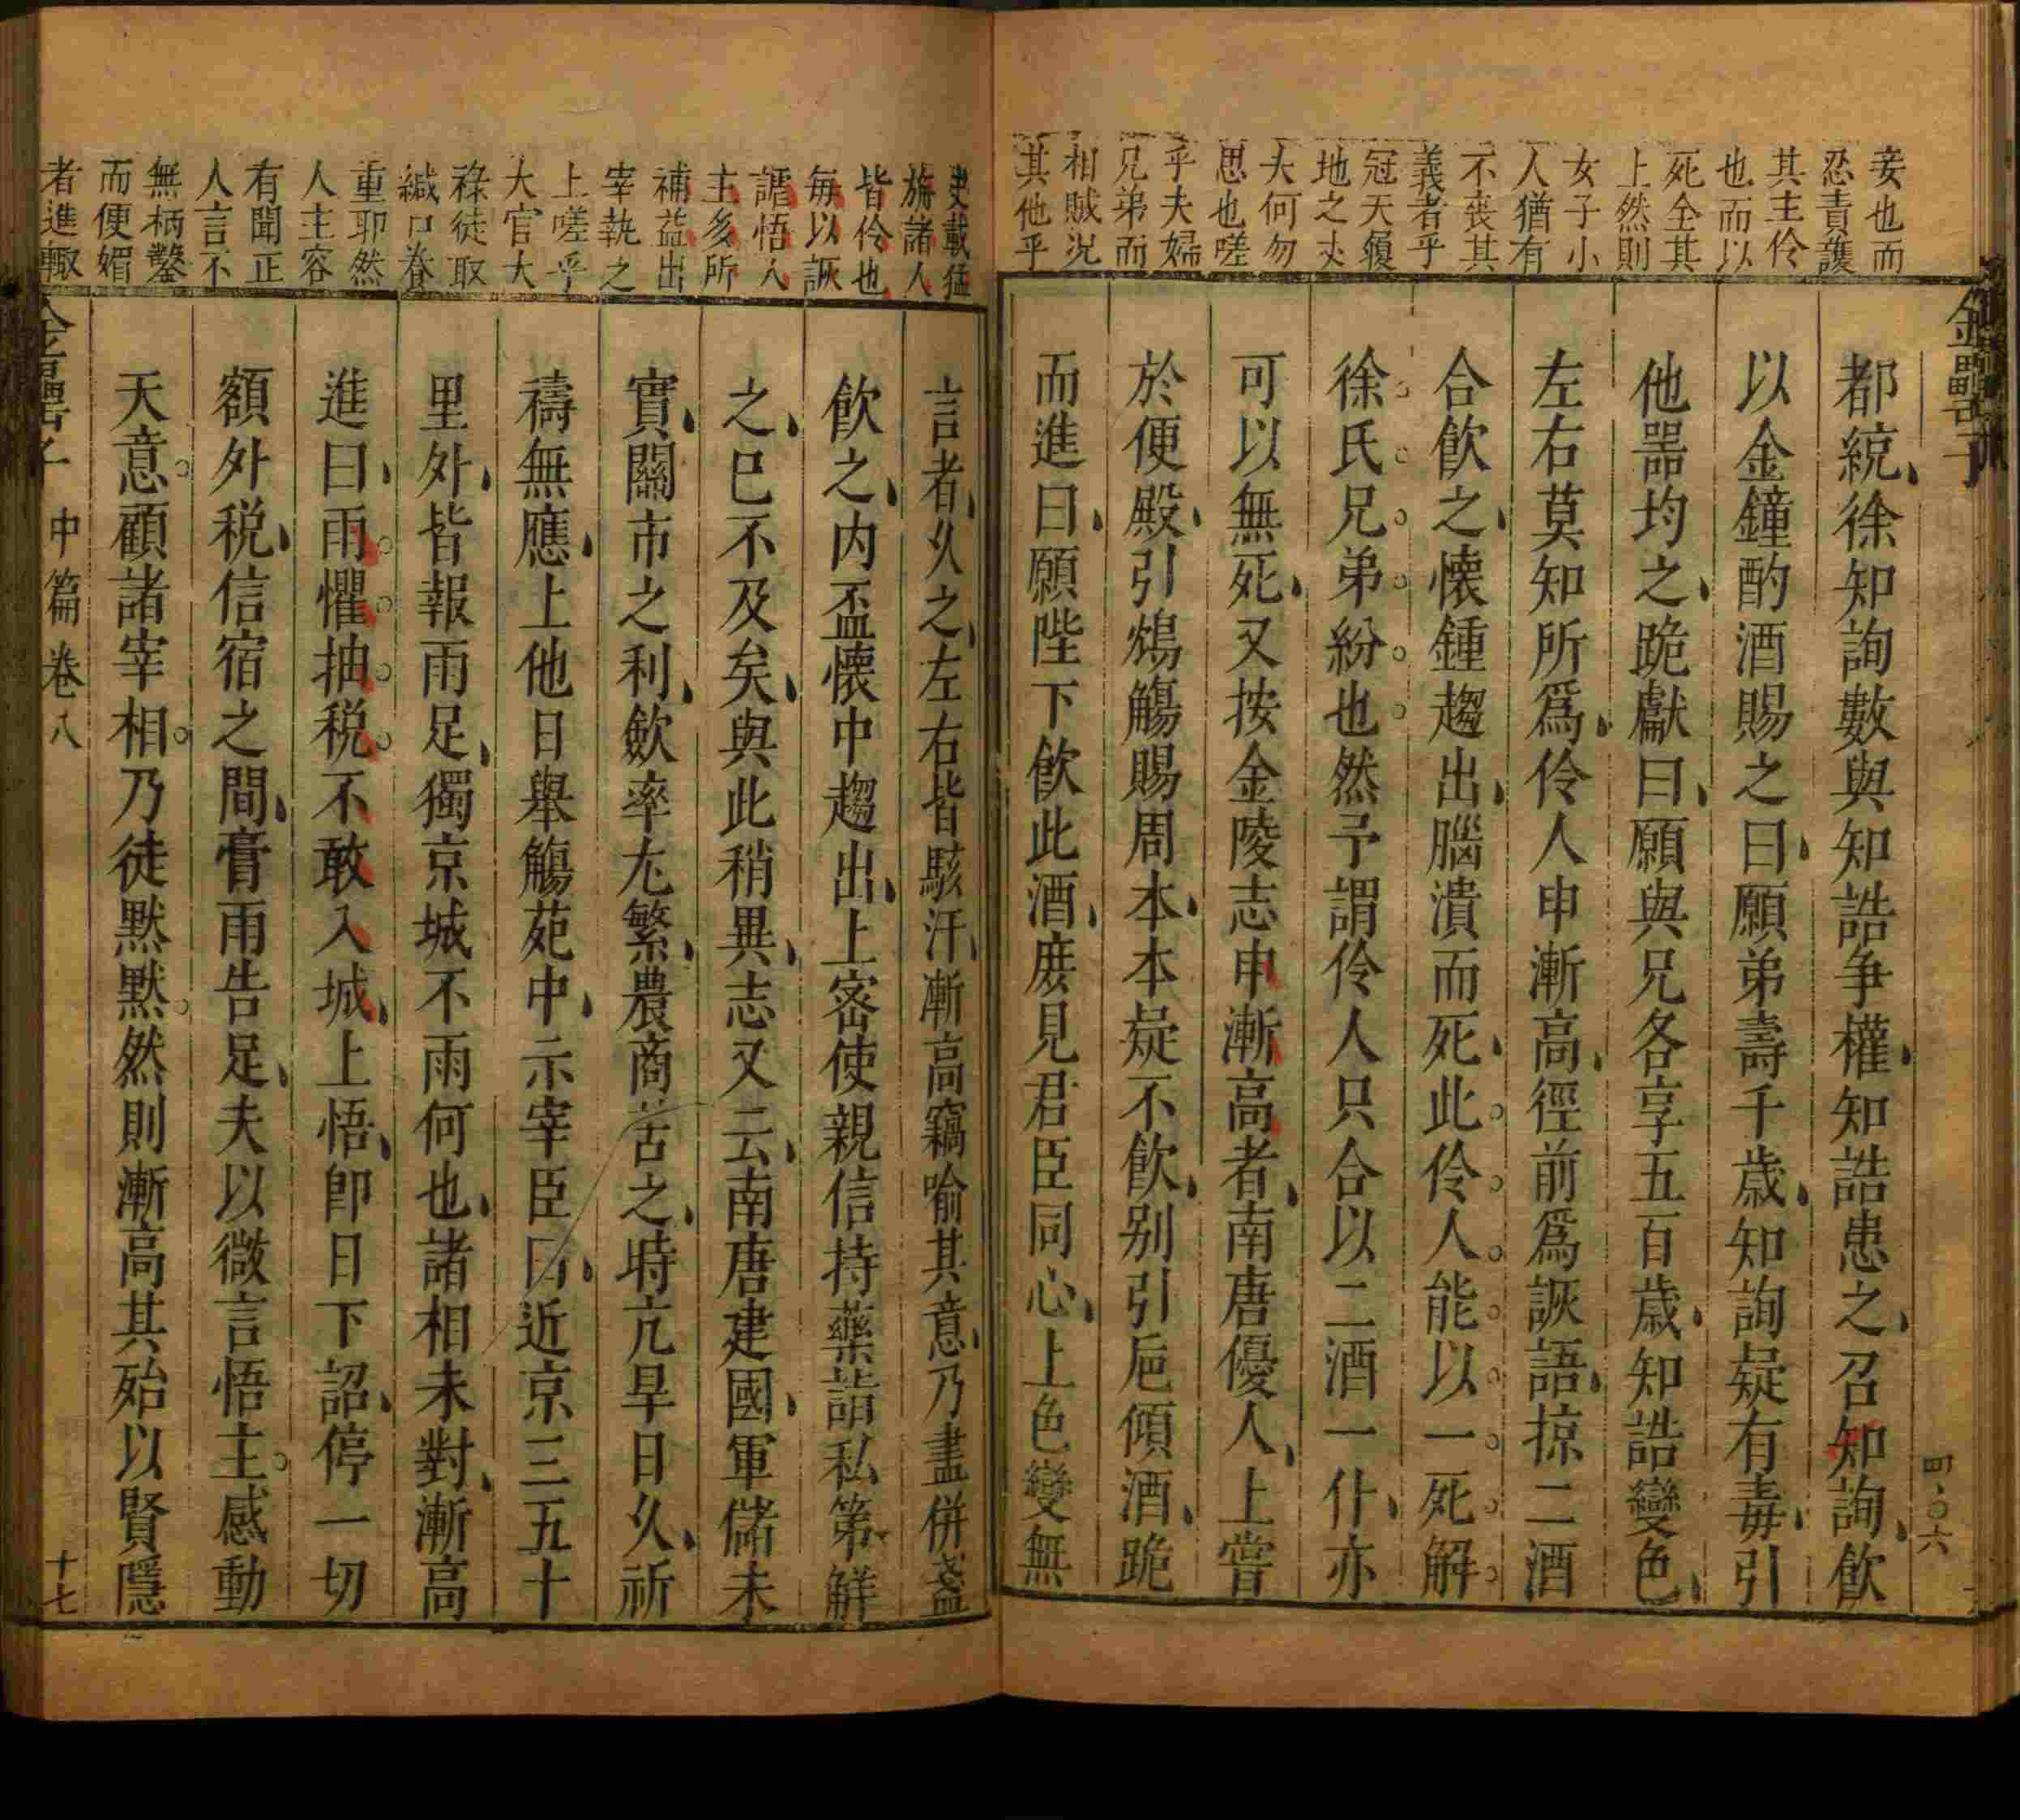 金罍子
妾也而
忍責護
其主伶
也而以
死全其
上然則
女子小
人猶有
不喪其
義者乎
冠天履
地之丈
夫何勿
思也嗟
乎夫婦
兄弟而
相賊况
其他乎
都統徐知詢數與知誥争權知誥患之召知詢飲
以金鐘酌酒賜之曰願弟壽千歳知詢疑有毒引
他噐均之跪獻曰願與兄各享五百歳知誥變色
左右莫知所爲伶人申漸高徑前爲詼語掠二酒
合飲之懐鍾趨出腦潰而死此伶人能以一死解
徐氏兄弟紛也然予謂伶人只合以二酒一仆亦
可以無死又按金陵志申漸高者南唐優人上嘗
於便殿引鴆觴賜周本本疑不飲别引巵傾酒跪
而進曰願陛下飲此酒庻見君臣同心上色變無
史載
旃諸人
皆伶也
毎以詼
謔悟人
主多所
補益出
宰執之
上嗟乎
大官大
祿徒取
緘口養
重耶然
人主容
有聞正
人言不
無柄鑿
而便媚
者進輙
言者久之左右皆駭汗漸高竊喻其意乃盡併盞
飲之内盃懐中趨出上宻使親信持藥詣私第觧
之巳不及矣與此稍異志又云南唐建國軍儲未
實關市之利歛率尤繁農商苦之時亢旱日久祈
禱無應上他日舉觴苑中示宰臣曰近京三五十
里外皆報雨足獨京城不雨何也諸相未對漸高
進曰雨懼抽税不敢入城上悟卽日下詔停一切
額外税信宿之間膏雨告足夫以微言悟主感動
天意顧諸宰相乃徒黙黙然則漸高其殆以賢隱
中篇卷八
十七